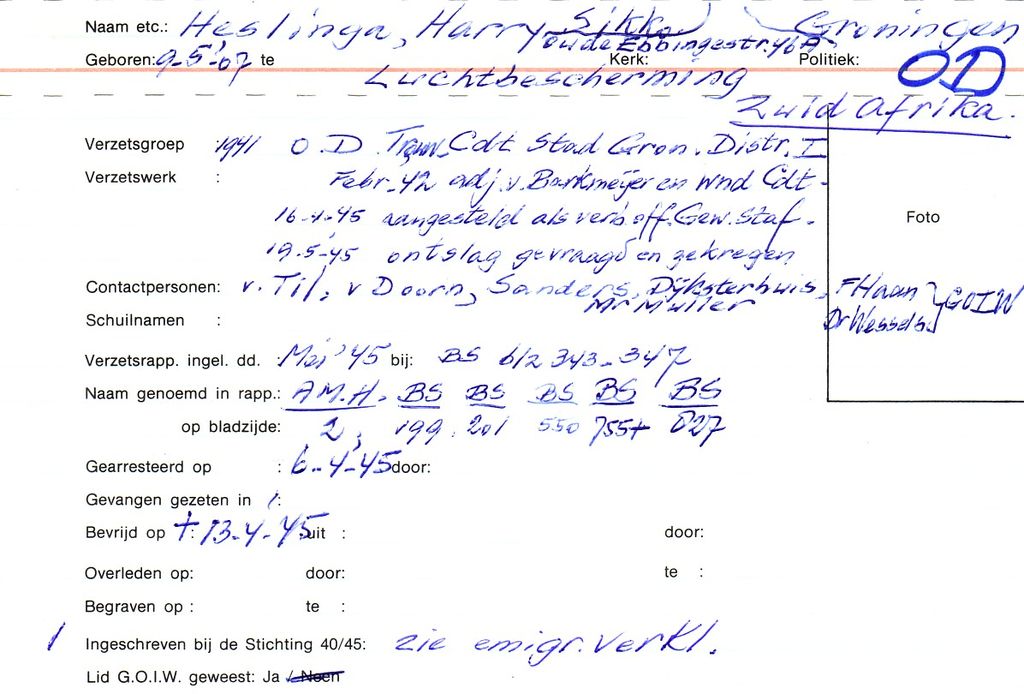 Naam etc.: Heslinga, Harry Sikko Groningen
oude Ebbingestr. 46A
Geboren: 9-5-'07 te Kerk: Politiek: OD
Luchtbescherming
Zuid Afrika.
Verzetsgroep 1941 O.D. Cdt Stad Gron. Distr. I
Verzetswerk : Febr. 42 adj. v. Barkmeijer en wnd Cdt.
16-4-45 aangesteld als verb. off. Gew. Staf.
19-5-'45 ontslag gevraagd en gekregen
Contactpersonen: v. Til, v Doorn, Sanders, Dijksterhuis, F Haan } GOIW
Mr Muller
Dr Wessels
Schuilnamen :
Foto
Verzetsrapp. ingel. dd. : Mei '45 bij: BS 612 343-347
Naam genoemd in rapp.: A.M.H. BS BS BS BS BS
op bladzijde: 2, 199 201 550 755+ 827
Gearresteerd op : 6-4-45 door:
Gevangen gezeten in :
Bevrijd op : ± 13-4-45 uit : door:
Overleden op: door: te :
Begraven op : te :
1 Ingeschreven bij de Stichting 40/45: zie emigr. verkl.
Lid G.O.I.W. geweest: Ja / Neen